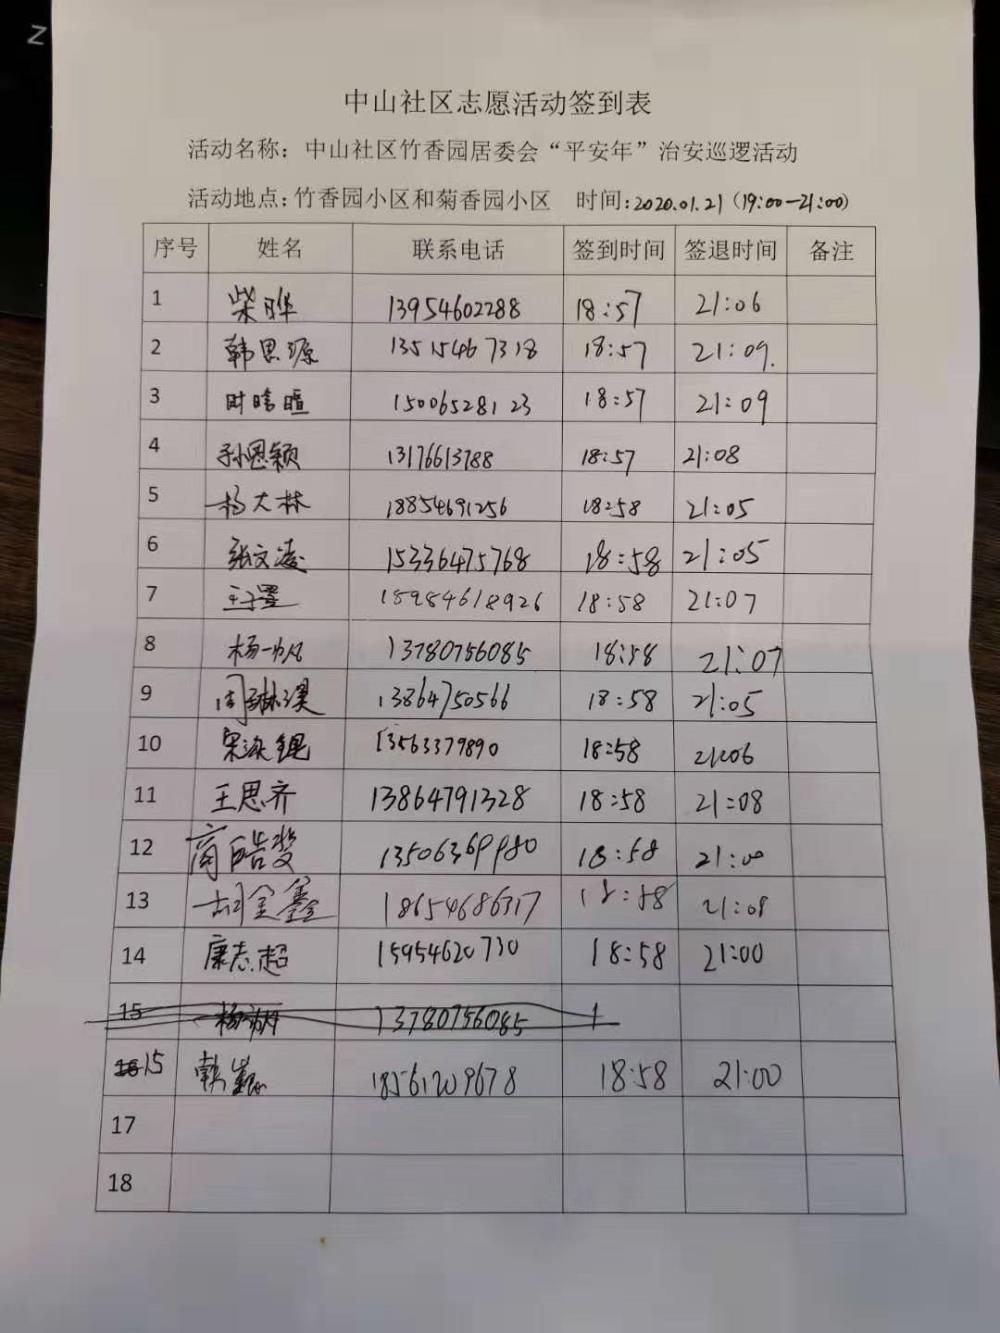 Z
中山社区志愿活动签到表
活动名称：中山社区竹香园居委会“平安年”治安巡逻活动
活动地点：竹香园小区和菊香园小区 时间：2020.01.21（19:00-21:00）
序号 姓名 联系电话 签到时间 签退时间 备注
1 柴晔 13954602288 18:57 21:06
2 韩思源 13515467318 18:57 21:09.
3 时晴暄 15006528123 18:57 21:09
4 孙恩颖 13176613788 18:57 21:08
5 杨大林 18854691256 18:58 21:05
6 张文凌 15336475768 18:58 21:05
7 18984618926 18:58 21:07
8 杨一帆 13780756085 18:58 21:07
9 周琳淏 13864750566 18:58 21:05
10 13563379890 18:58 21:06
11 王思齐 13864791328 18:58 21:08
12 商皓斐 13506369980 18:58 21:00
13 胡金鑫 18654686317 18:58 21:08
14 康志超 15954620730 18:58 21:00
15 13780756085 1
16 15 18561209678 18:58 21:00
17
18